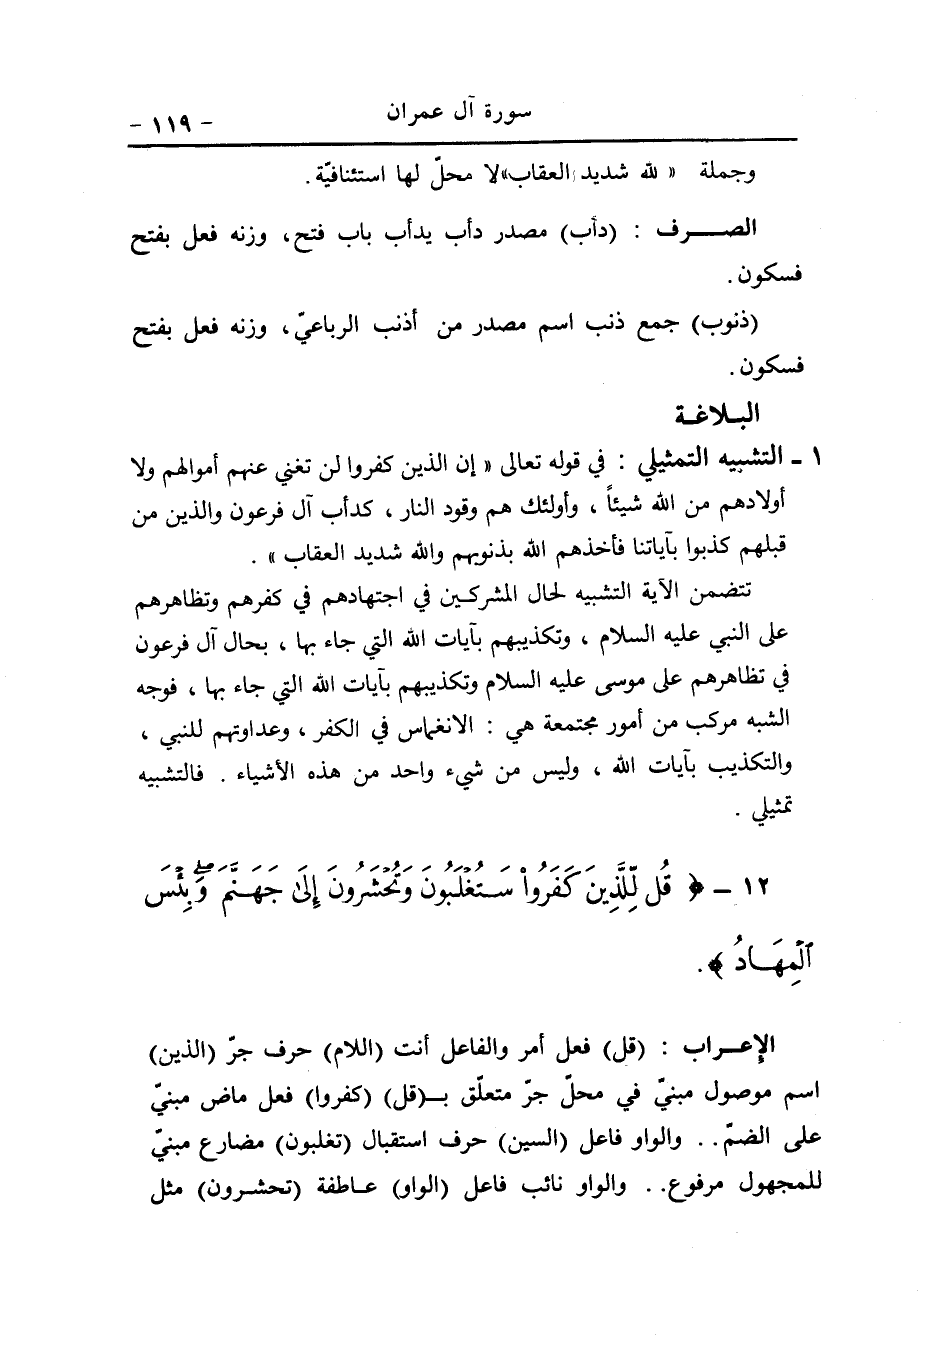 سورة آل عمران
- ١١٩ -
وجملة « لله شديد العقاب»لا محلّ لها استئنافيّة .
الصـــرف : (دأب) مصدر دأب يدأب باب فتح، وزنه فعل بفتح
فسكون .
(ذنوب) جمع ذنب اسم مصدر من أذنب الرباعيّ، وزنه فعل بفتح
فسكون .
البـلاغـة
١ - التشبيه التمثيلي : في قوله تعالى « إن الذين كفروا لن تغني عنهم أموالهم ولا
أولادهم من الله شيئاً ، وأولئك هم وقود النار ، كدأب آل فرعون والذين من
قبلهم كذبوا بآياتنا فأخذهم الله بذنوبهم والله شديد العقاب » .
تتضمن الآية التشبيه لحال المشركين في اجتهادهم في كفرهم وتظاهرهم
على النبي عليه السلام ، وتكذيبهم بآيات الله التي جاء بها ، بحال آل فرعون
في تظاهرهم على موسى عليه السلام وتكذيبهم بآيات الله التي جاء بها ، فوجه
الشبه مركب من أمور مجتمعة هي : الانغماس في الكفر ، وعداوتهم للنبي ،
والتكذيب بآيات الله ، وليس من شيء واحد من هذه الأشياء . فالتشبيه
تمثيلي .
١٢ - ﴿ قُل لِّلَّذِينَ كَفَرُوا۟ سَتُغْلَبُونَ وَتُحْشَرُونَ إِلَىٰ جَهَنَّمَ ۖ وَبِئْسَ
ٱلْمِهَادُ ﴾.
الإعـراب : (قل) فعل أمر والفاعل أنت (اللام) حرف جرّ (الذين)
اسم موصول مبنيّ في محلّ جرّ متعلّق بـ(قل) (كفروا) فعل ماض مبنيّ
على الضمّ.. والواو فاعل (السين) حرف استقبال (تغلبون) مضارع مبنيّ
للمجهول مرفوع.. والواو نائب فاعل (الواو) عـاطفة (تحشـرون) مثل